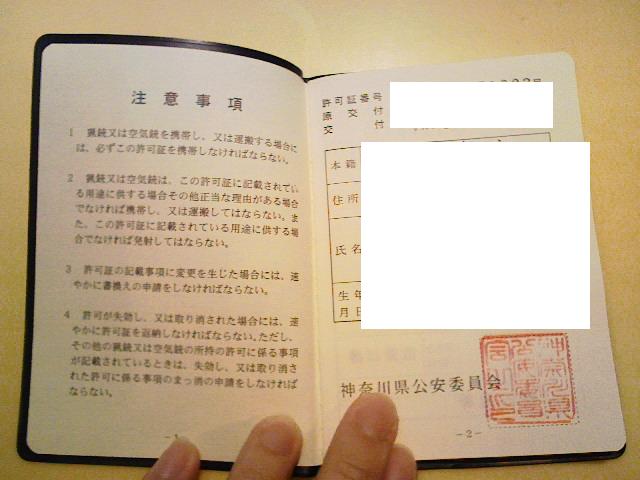 注意事項
1 猟銃又は空気銃を携帯し、又は運搬する場合に
は、必ずこの許可証を携帯しなければならない。
2 猟銃又は空気銃は、この許可証に記載されてい
る用途に供する場合その他正当な理由がある場合
でなければ携帯し、又は運搬してはならない。ま
た、この許可証に記載されている用途に供する場
合でなければ発射してはならない。
3 許可証の記載事項に変更を生じた場合には、速
やかに書換えの申請をしなければならない。
4 許可が失効し、又は取り消された場合には、速
やかに許可証を返納しなければならない。ただし、
その他の猟銃又は空気銃の所持の許可に係る事項
が記載されているときは、失効し、又は取り消さ
れた許可に係る事項のまっ消の申請をしなければな
らない。
－1
許可証番号
原交付
交付
本籍
住所
氏名
生年
月日
神奈川県公安委員会
－2－